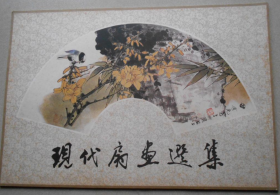 現代扇畫選集